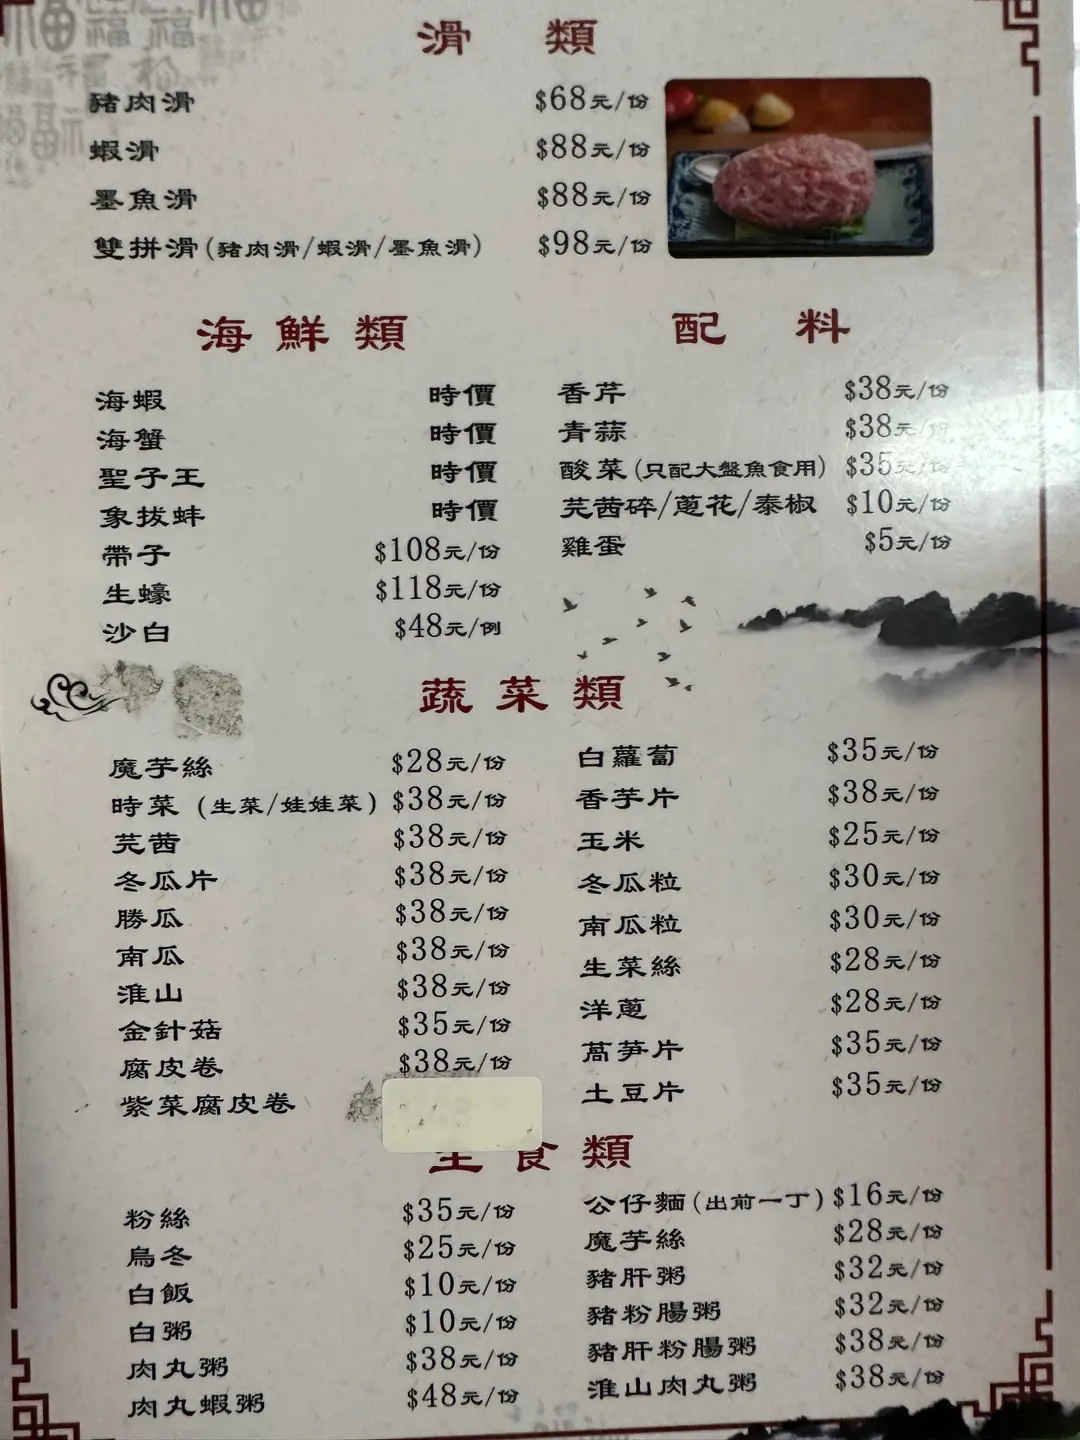 滑 類
豬肉滑 $68元/份
蝦滑 $88元/份
墨魚滑 $88元/份
雙拼滑(豬肉滑/蝦滑/墨魚滑) $98元/份
海鮮類
海蝦 時價
海蟹 時價
聖子王 時價
象拔蚌 時價
帶子 $108元/份
生蠔 $118元/份
沙白 $48元/例
配 料
香芹 $38元/份
青蒜 $38元/份
酸菜(只配大盤魚食用) $35元/份
芫茜碎/蔥花/泰椒 $10元/份
雞蛋 $5元/份
蔬菜類
魔芋絲 $28元/份
時菜 (生菜/娃娃菜) $38元/份
芫茜 $38元/份
冬瓜片 $38元/份
勝瓜 $38元/份
南瓜 $38元/份
淮山 $38元/份
金針菇 $35元/份
腐皮卷 $38元/份
紫菜腐皮卷
白蘿蔔 $35元/份
香芋片 $38元/份
玉米 $25元/份
冬瓜粒 $30元/份
南瓜粒 $30元/份
生菜絲 $28元/份
洋蔥 $28元/份
萵笋片 $35元/份
土豆片 $35元/份
主食類
粉絲 $35元/份
烏冬 $25元/份
白飯 $10元/份
白粥 $10元/份
肉丸粥 $38元/份
肉丸蝦粥 $48元/份
公仔麵(出前一丁) $16元/份
魔芋絲 $28元/份
豬肝粥 $32元/份
豬粉腸粥 $32元/份
豬肝粉腸粥 $38元/份
淮山肉丸粥 $38元/份